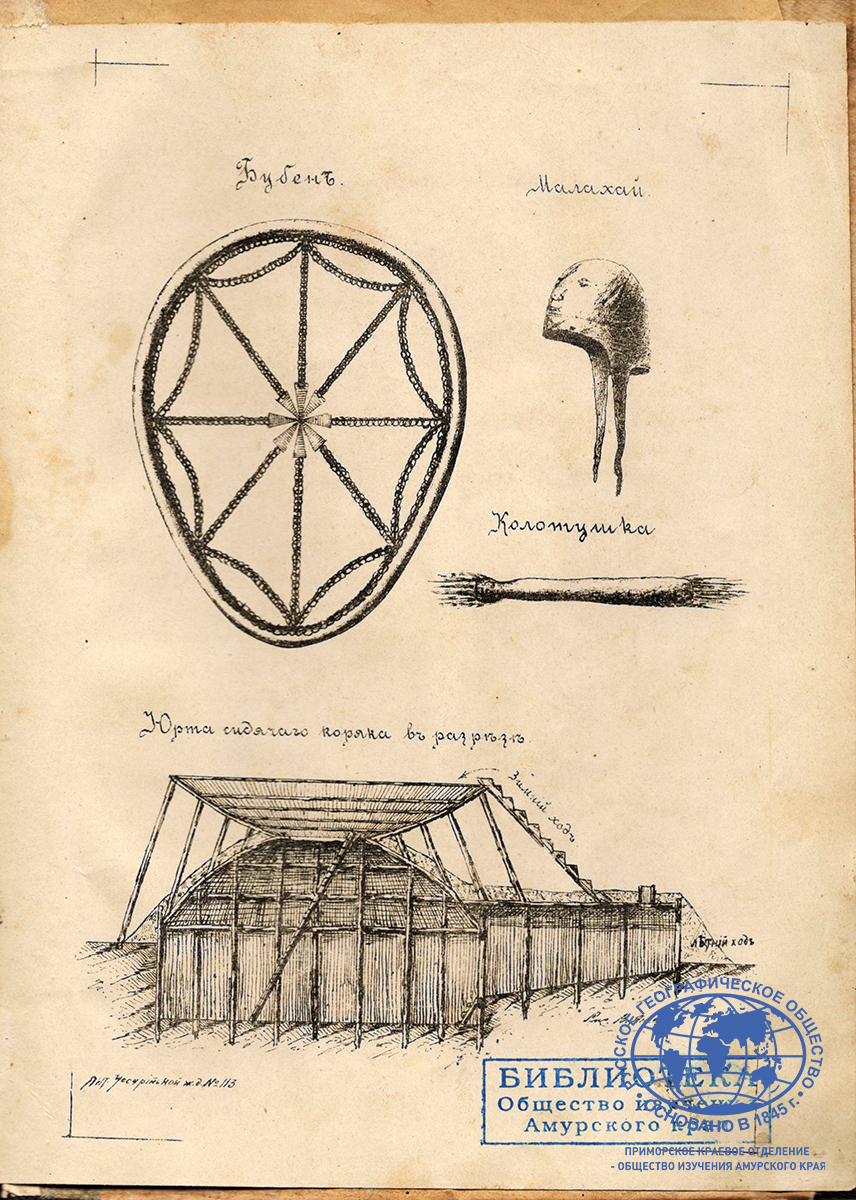 Бубенъ.
Малахай.
Колотушка
Юрта сидячаго коряка въ разрѣзѣ.
Зимній ходъ
лѣтній ходъ
Лит. Уссурійской ж.д. № 113
БИБЛИОТЕКА
Общество изучения
Амурского края
РУССКОЕ ГЕОГРАФИЧЕСКОЕ ОБЩЕСТВО
• ОСНОВАНО В 1845 г. •
ПРИМОРСКОЕ КРАЕВОЕ ОТДЕЛЕНИЕ
- ОБЩЕСТВО ИЗУЧЕНИЯ АМУРСКОГО КРАЯ